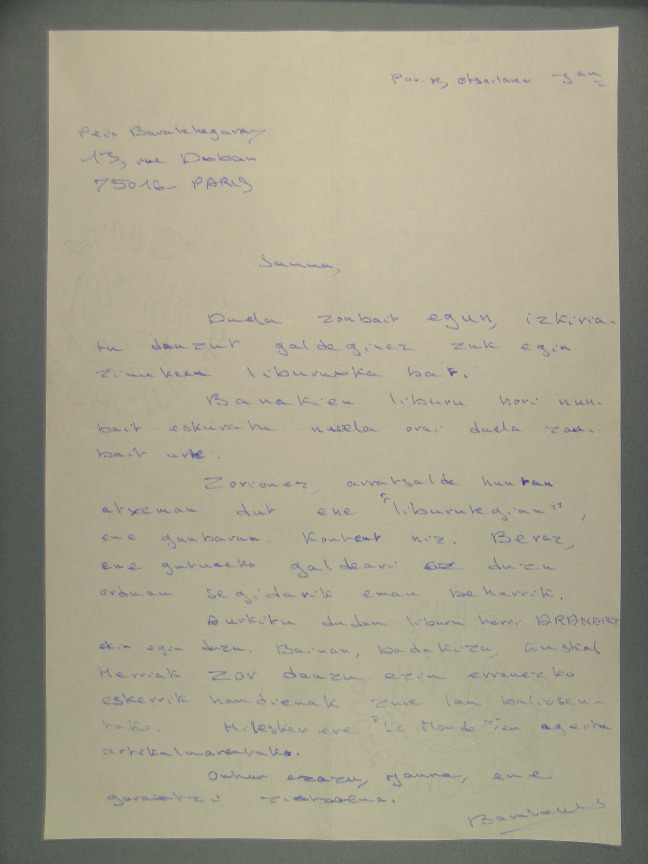 Parise, otsailaren 5 an
Peio Baratchegaray
13, rue Duban
75016 - PARIS
Jauna,
Duela zonbait egun, izkiria-
tu danzut galdeginez zuk egin
zinukeen liburuska bat.
Banakien liburu hori nun-
bait eskuratu nuela orai duela zon-
bait urte.
Zorionez, arratsalde huntan
atxeman dut ene "liburutegian",
ene ganbaran. Kontent niz. Beraz,
ene gutuneko galdeari ez duzu
orduan segidarik eman beharrik.
Aurkitu dudan liburu horri
ekin egin duzu. Bainan, badakizu, Euskal
Herriak zor danzu ezin erranezko
eskerrik handienak zure lan baliosen-
tako. Milesker ere "Le Monde"ien agertu
artikuluarentako.
Onhar ezazu, jauna, ene